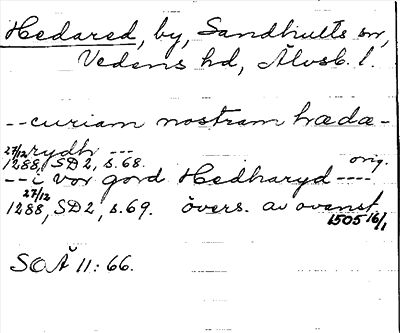 Hedared, by, Sandhults sn,
Vedens hd, Älvsb. l.
--curiam nostram hædæ-
rydh ---
27/12 1288, SD 2, s. 68. orig.
-- i vor gord Hedharyd ----
27/12
1288, SD 2, s. 69. övers. av ovanst.
1505 16/1
SOÄ 11: 66.